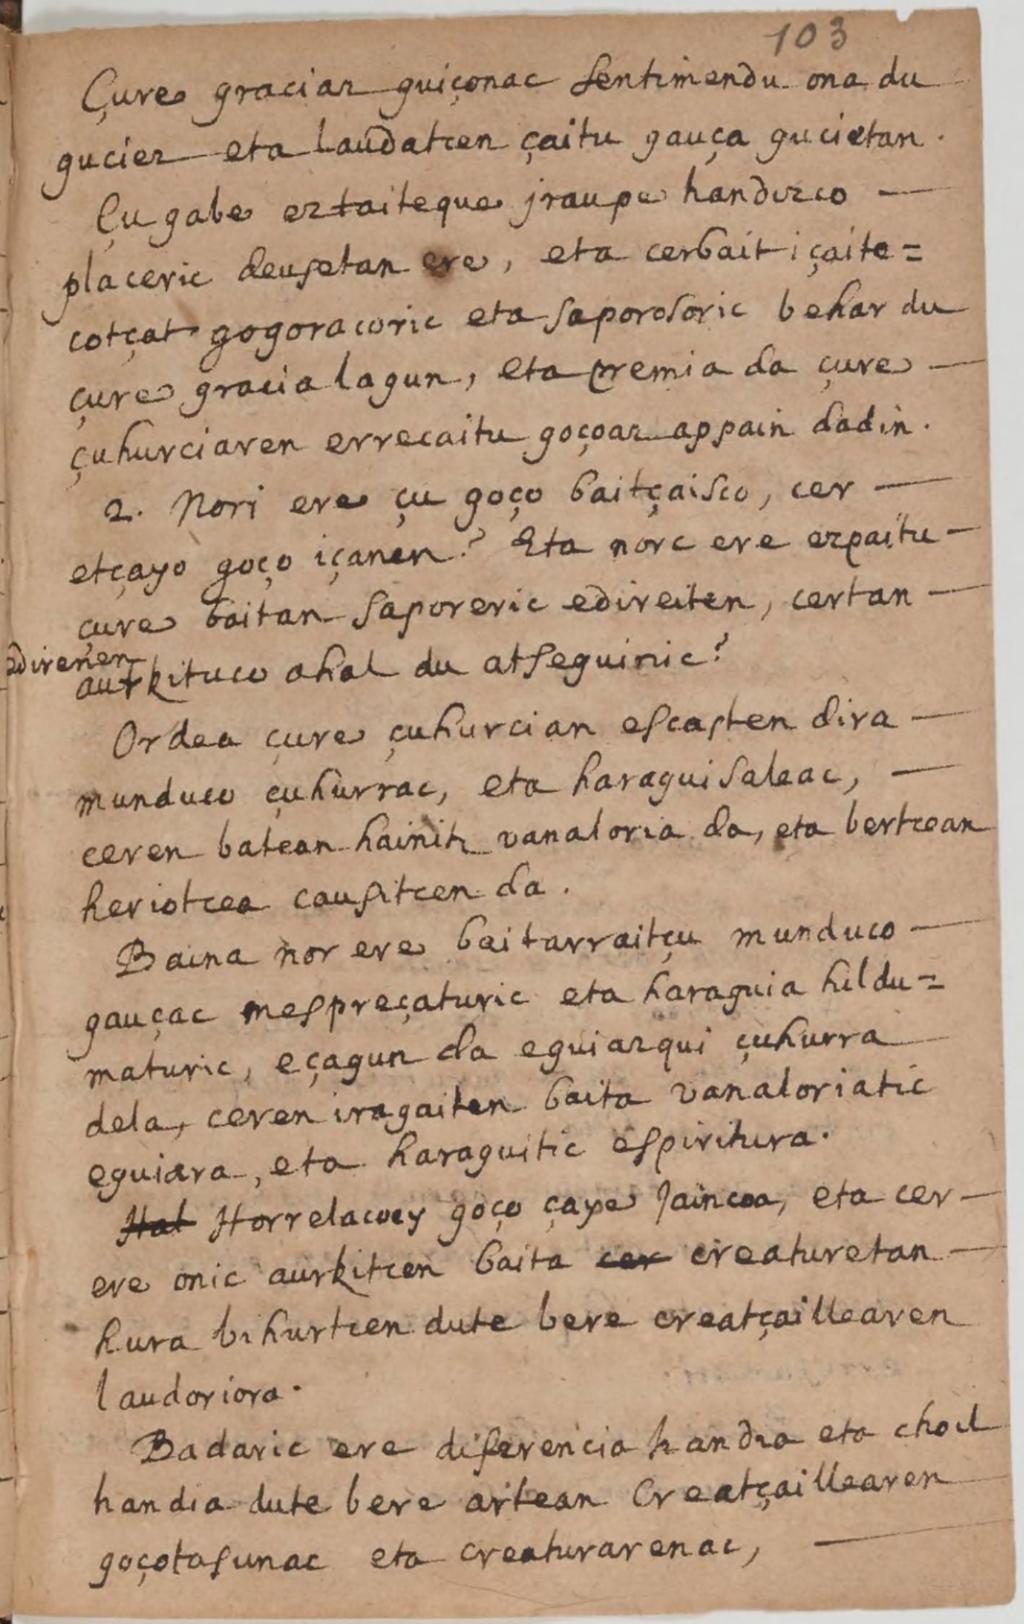 103
Çure graciaz guiçonac sentimendu ona du
guciez eta laudatcen çaitu gauça gucietan.
Çu gabe eztaiteque jraupe handizco —
placeric deusetan ere, eta cerbait içaite=
cotçat gogoracoric eta saporosoric behar du
çure gracia lagun, eta premia da çure —
çuhurciaren errecaitu goçoaz appain dadin.
2. Nori ere çu goço baitçaisco, cer —
etçayo goço içanen? Eta norc ere ezpaitu —
çure baitan saporeric edireiten, certan —
edirenen
aurkituco ahal du atseguinic?
Ordea çure çuhurcian escasten dira —
munduco çuhurrac, eta haraguisaleac, —
ceren batean hainitz vanaloria da, eta bertcean
heriotcea causitcen da.
Baina nor ere baitarraitçu munduco —
gauçac mespreçaturic eta haraguia hildu=
maturic, eçagun da eguiazqui çuhurra
dela, ceren iragaiten baita vanaloriatic
eguiara, eta haraguitic espiritura.
Hal Horrelacoey goço çaye Jaincoa, eta cer —
ere onic aurkitcen baita cer creaturetan —
hura bihurtcen dute bere creatçaillearen
laudoriora.
Badaric ere diferencia handia eta choil
handia dute bere artean Creatçaillearen
goçotasunac eta creaturarenac, —